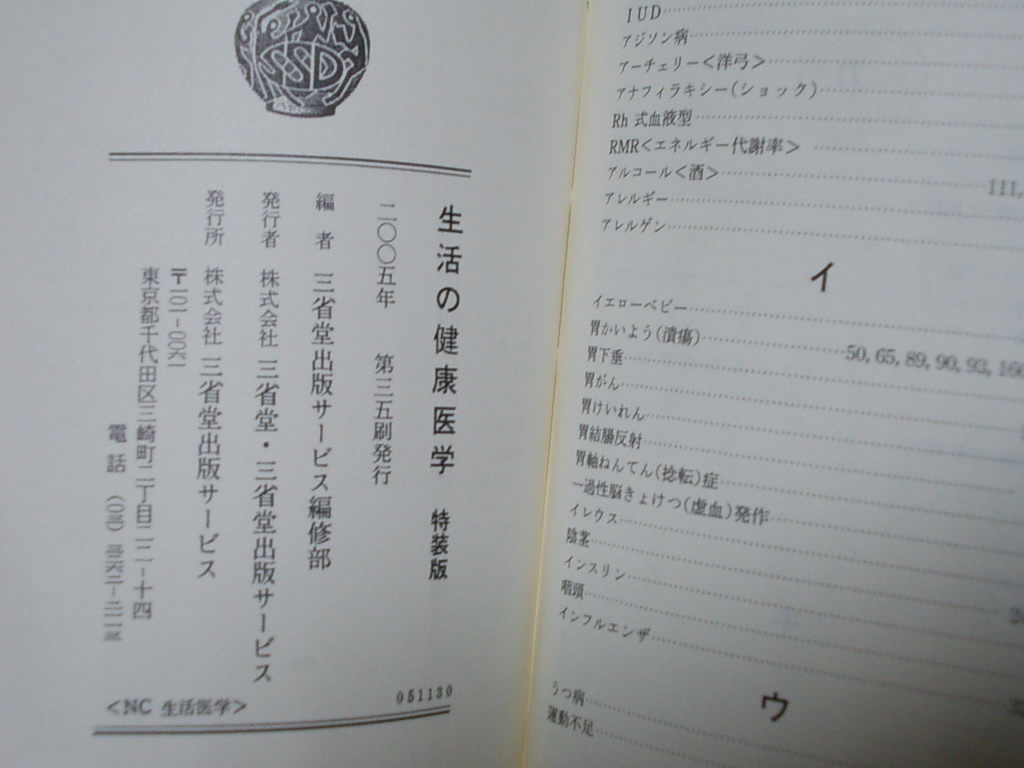 生活の健康医学 特装版
二〇〇五年 第三五刷発行
編者 三省堂出版サービス編修部
発行者 株式会社 三省堂・三省堂出版サービス
発行所 株式会社 三省堂出版サービス
東京都千代田区三崎町二丁目二二-十四
<NC 生活医学>
051130
IUD
アジソン病
アーチェリー<洋弓>
アナフィラキシー(ショック)
Rh 式血液型
RMR<エネルギー代謝率>
アルコール<酒> III,
アレルギー
アレルゲン
イ
イエローベビー
胃かいよう(潰瘍) 50, 65, 89, 90, 93, 160
胃下垂
胃がん
胃けいれん
胃結腸反射
胃軸ねんてん(捻転)症
一過性脳きょけつ(虚血)発作
イレウス
陰茎
インスリン
咽頭
インフルエンザ
ウ
うつ病
運動不足